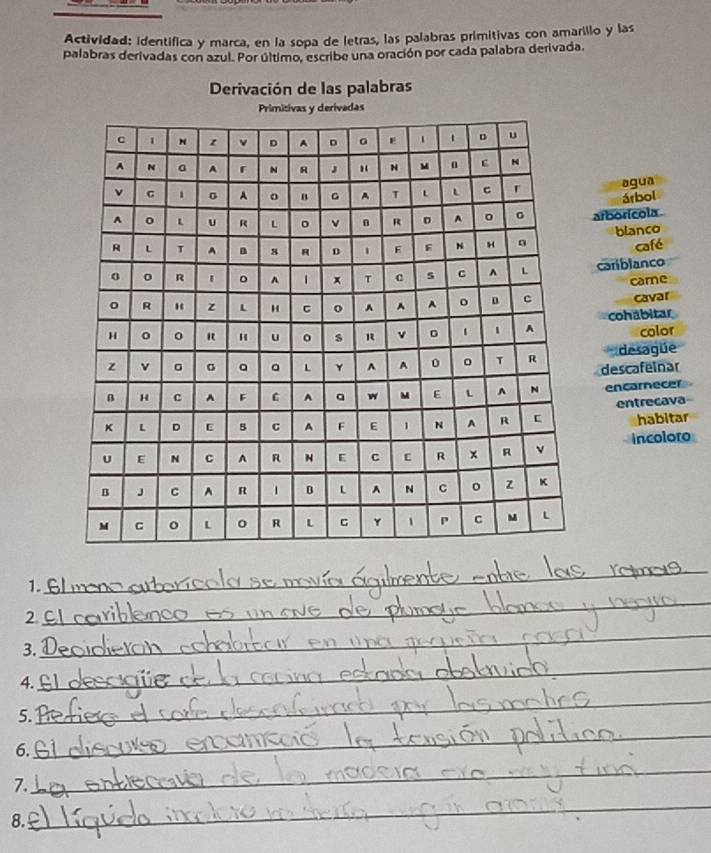 Actividad: identifica y marca, en la sopa de letras, las palabras primitivas con amarillo y las
palabras derivadas con azul. Por último, escribe una oración por cada palabra derivada.
Derivación de las palabras
Primitivas y derivadas
C I N Z V D A D G E I I D U
A N G A F N R J H N M B E N
V C I G Á O B G A T L L C F
A O L U R L O V B R D A O G
R L T A B N R D I E E N H
G O R I O A I X T C S C A L
O R H Z L H C O A A A O B C
H O O R H U O S R V G I I A
Z V G G Q Q L Y A A Ü O T R
B H C A F É A Q W M E L A N
K L D E S C A F E I N A R E
U E N C A R N E C E R X R V
B J C A R I B L A N C O Z K
M C O L O R L G Y I P C M L
agua
árbol
arborícola
blanco
café
cariblanco
carne
cavar
cohabitar
color
desagüe
descafeinar
encarnecer
entrecava
habitar
incoloro
1. El mono arborícola se movía ágilmente entre las ramas.
2. El cariblanco es un ave de plumaje blanco y negro
3. Decidieron cohabitar en una pequeña casa
4. El desagüe de la cocina estaba obstruido.
5. Prefiero el café descafeinado por las noches
6. El discurso encarneció la tensión política.
7. La entrecava de la madera era muy fina
8. El líquido incoloro no tenía ningún aroma.